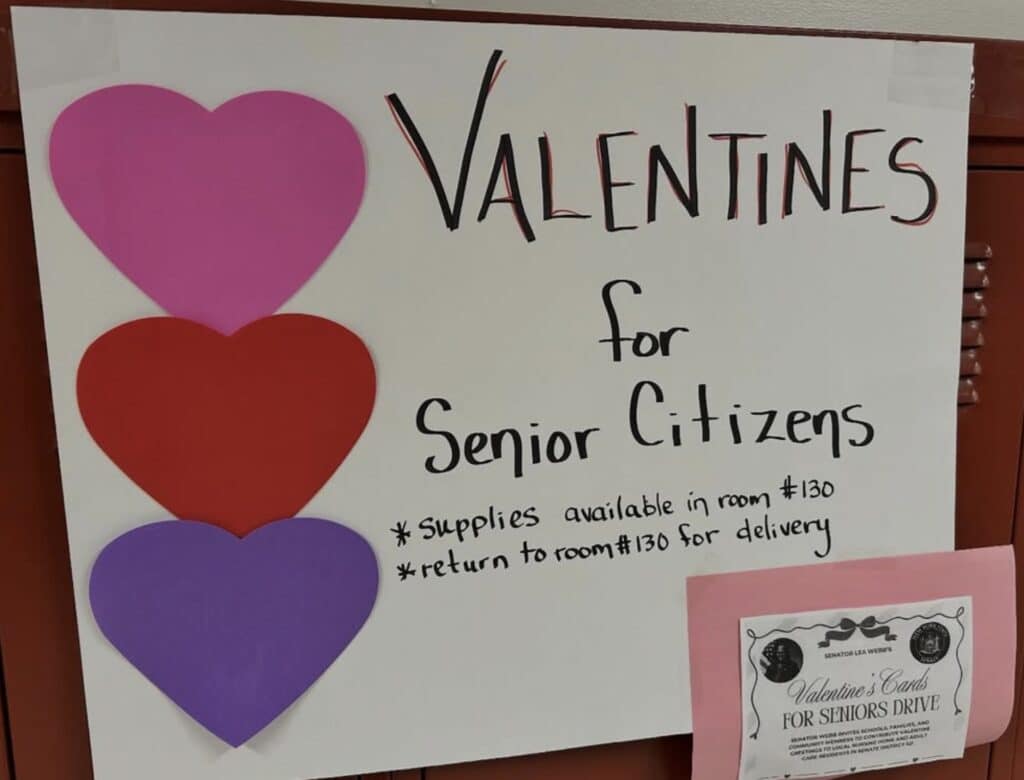 VALENTINES
for
Senior Citizens
*supplies available in room #130
*return to room #130 for delivery
SENATOR LEA WEBB'S
Valentine's Cards
FOR SENIORS DRIVE
SENATOR WEBB INVITES SCHOOLS, FAMILIES, AND
COMMUNITY MEMBERS TO CONTRIBUTE VALENTINE
GREETINGS TO LOCAL NURSING HOME AND ADULT
CARE RESIDENTS IN SENATE DISTRICT 52.